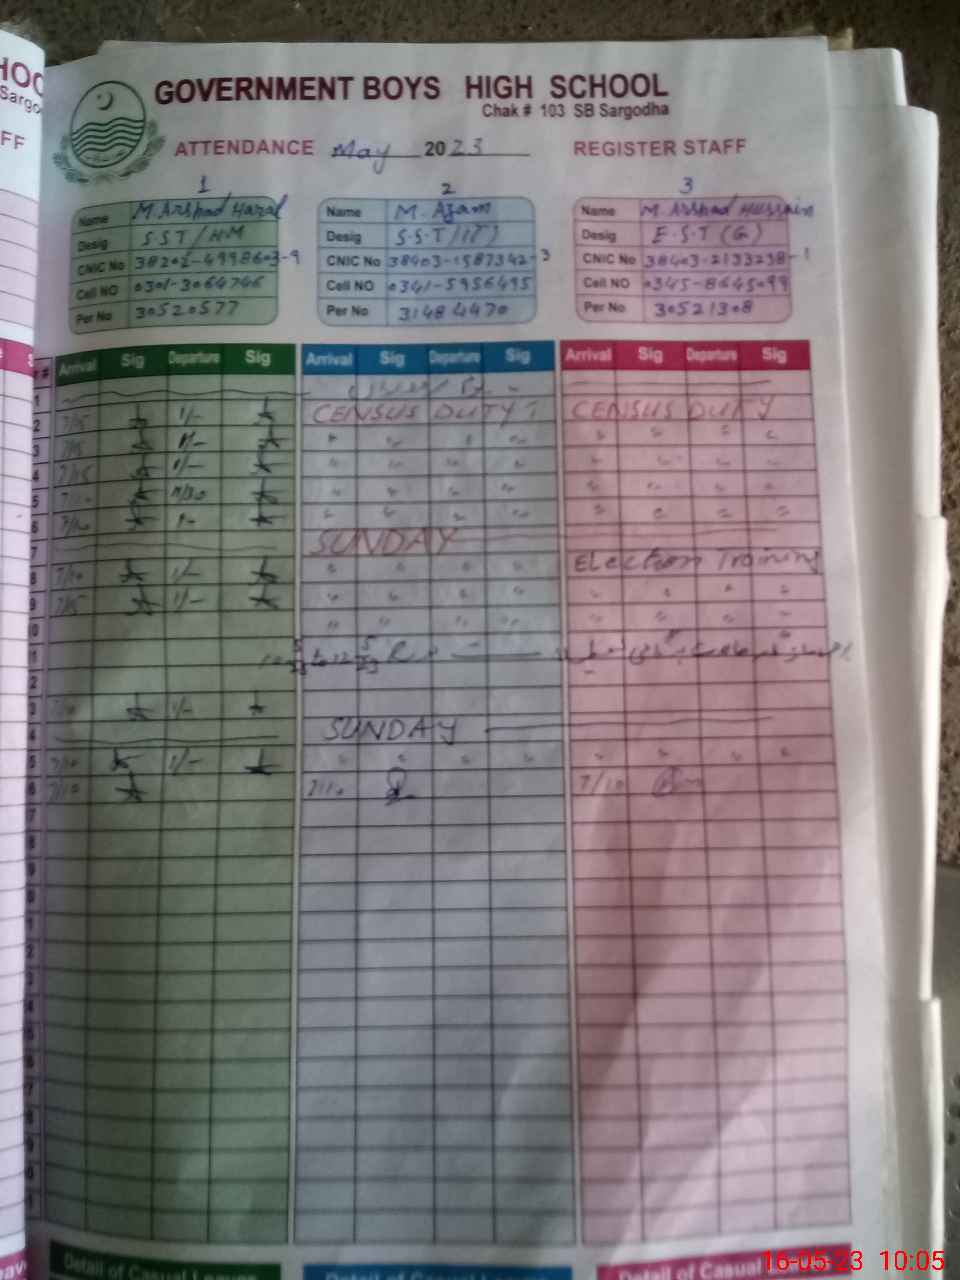 HOO
Sargo
FF
GOVERNMENT BOYS HIGH SCHOOL
Chak # 103 SB Sargodha
ATTENDANCE May 2023 REGISTER STAFF
1 2 3
Name M. Arshad Haral Name M. Azam Name M. Arshad Hussain
Desig S.S.T/HM Desig S.S.T(IT) Desig E.S.T (G)
CNIC No 38202-4998603-9 CNIC No 38403-1587342-3 CNIC No 38403-2133238-1
Cell NO 0301-3064746 Cell NO 0341-5956495 Cell NO 0345-8645099
Per No 30520577 Per No 31484470 Per No 30521308
Arrival Sig Departure Sig Arrival Sig Departure Sig Arrival Sig Departure Sig
1
2 7/15 1/- CENSUS DUTY CENSUS DUTY
3 7/15 1/- " " " " " " " "
4 7/15 1/- " " " " " " " "
5 7/10 " " " " " " " "
6 7/10 1- " " " " " " " "
7 SUNDAY
8 7/10 1/- " " " " Election Training
9 7/15 1/- " " " " " " " "
0 " " " " " " " "
1
2
3 7/10 1/-
4 SUNDAY
5 7/10 1/- " " " " " " " "
6 7/10 7/10 7/10
7
8
9
0
1
2
3
4
5
6
7
8
9
0
1
Detail of Casual Detail of Casual Detail of Casual
16-05-23 10:05